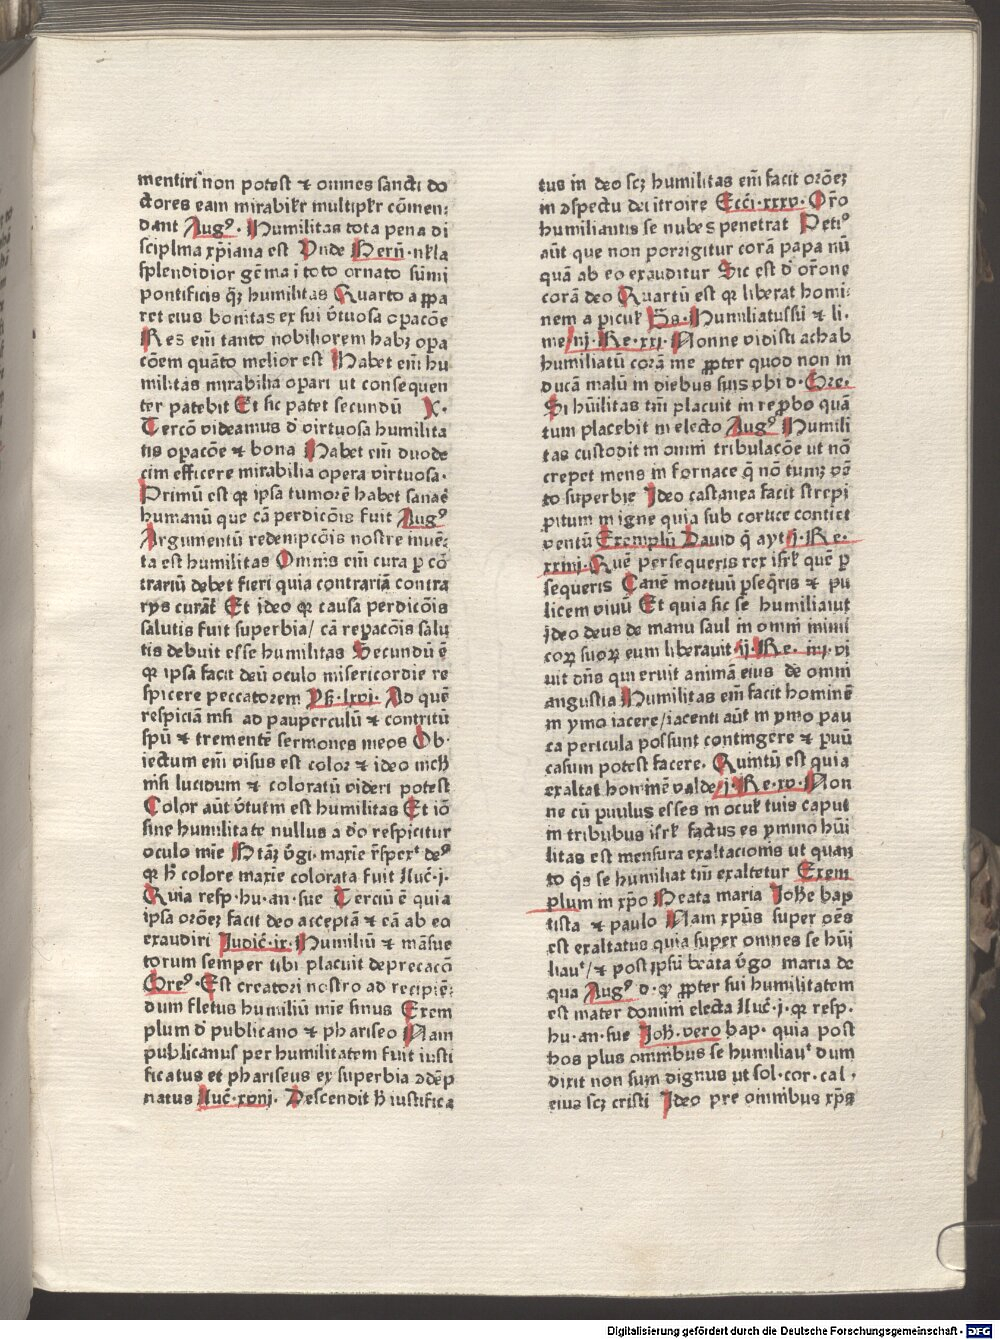 mentiri non potest ⁊ omnes sancti do
ctores eam mirabilr̃ multiplr̃ cōmen⸗
dant Augꝰ. Humilitas tota pena di
sciplina xp̄iana est Vnde Bern̄.nl̄la
splendidior gēma ī toto ornato sūmi
pontificis q̄ꝫ humilitas Quarto appa
ret eius bonitas ex sui v̄tuosa opacōe
Res em̄ tanto nobiliorem habꝫ opa
cōem quāto melior est Habet em̄ hu
militas mirabilia opari ut consequen
ter patebit Et sic patet secundū X.
Tercō videamus d̄ virtuosa humilita
tis opacōe ⁊ bona Habet em̄ duode
cim efficere mirabilia opera virtuosa.
Primū est qꝛ ipsa tumorē habet sanare
humanū que cā perdicōis fuit Augꝰ
Argumentū redempcōis nostre inuē⸗
ta est humilitas Omnis em̄ cura p cō
trariū debet fieri quia contrariā contra
rys curāt Et ideo qꝛ causa perdicōis
salutis fuit superbia/ cā repacōis salu
tis debuit esse humilitas Secundū ē
qꝛ ipsa facit deū oculo misericordie re
spicere peccatorem Ps̄.lxvi. Ad quē
respiciā nisi ad pauperculū ⁊ contritū
spū ⁊ trementē sermones meos Ob⸗
iectum em̄ visus est color ⁊ ideo nichil
nisi lucidum ⁊ coloratū videri potest
Color aūt v̄tutm est humilitas Et iō
sine humilitate nullus a dō respicitur
oculo mīe Btāꝫ v̄gi.maxīe r̄spexᵗ deꝰ
qꝛ h̄ colore maxīe colorata fuit Luc̄.j.
Quia resp.hu.an.sue Terciū ē quia
ipsa orōeꝫ facit deo acceptā ⁊ eā ab eo
exaudiri Judic̄.ix.Humiliū ⁊ māsue
torum semper tibi placuit deprecacō
Greꝰ.Est creatori nostro ad recipiē⸗
dum fletus humiliū mīe sinus Exem
plum d̄ publicano ⁊ phariseo Nam
publicanus per humilitatem fuit iusti
ficatus et phariseus ex superbia ꝯdēp
natus Luc̄.xviij. Descendit h̄ iustifica
tus in deo scꝫ humilitas em̄ facit orōeꝫ
in ꝯspectu dei ītroire Ecci.xxxv.Orō
humiliantis se nubes penetrat Petiᵒ
aūt que non porrigitur corā papa nū
quā ab eo exauditur Sic est d̄ orōne
corā deo Quartū est qꝛ liberat homi⸗
nem a picul̄ Ps̄.Humiliatussū ⁊ li.
me/iij.Re.xxi.Nonne vidisti achab
humiliatū corā me ꝓpter quod non in
ducā malū in diebus suis vbi d.Gre.
Si hūilitas tm̄ placuit in reprobo quā
tum placebit in electo Augꝰ Humili
tas custodit in omni tribulacōe ut nō
crepet mens in fornace q̄ nō tumꝫ vē
to superbie Ideo castanea facit strepi
pitum in igne quia sub cortice contīet
ventū Exemplū Dauid q̄ ayt j.Re.
xxiiij.Quē persequeris rex isrl̄ quē p
sequeris Canē mortuū pseq̄ris ⁊ pu
licem viuū Et quia sic se humiliauit
ideo deus de manu saul in omni inimi
coꝝ suoꝝ eum liberauit.ij.Re. iiij.vi
uit dn̄s qui eruit animā eius de omni
angustia Humilitas em̄ facit hominē
in ymo iacere/iacenti aūt in ymo pau
ca pericula possunt contingere ⁊ puū
casum potest facere. Quintū est quia
exaltat hominē valde/j.Re.xv.Non
ne cū puulus esses in ocul̄ tuis caput
in tribubus isrl̄ factus es ymmo hūi
litas est mensura exaltacionis ut quan
to q̄s se humiliat tm̄ exaltetur Exem
plum in xp̄o Beata maria Johē bap
tista ⁊ paulo Nam xp̄us super oēs
est exaltatus quia super omnes se hūi
liauᵗ/⁊ post ipsū beata v̄go maria de
qua Augꝰ d.qꝛ ꝓpter sui humilitatem
est mater domini electa Luc̄.j.qꝛ resp.
hu.an.sue Joh̄.vero bap. quia post
hos plus omnibus se humiliauᵗ dum
dixit non sum dignus ut sol.cor.cal.
eius scꝫ cristi Ideo pre omnibus xp̄s
Digitalisierung gefördert durch die Deutsche Forschungsgemeinschaft - DFG